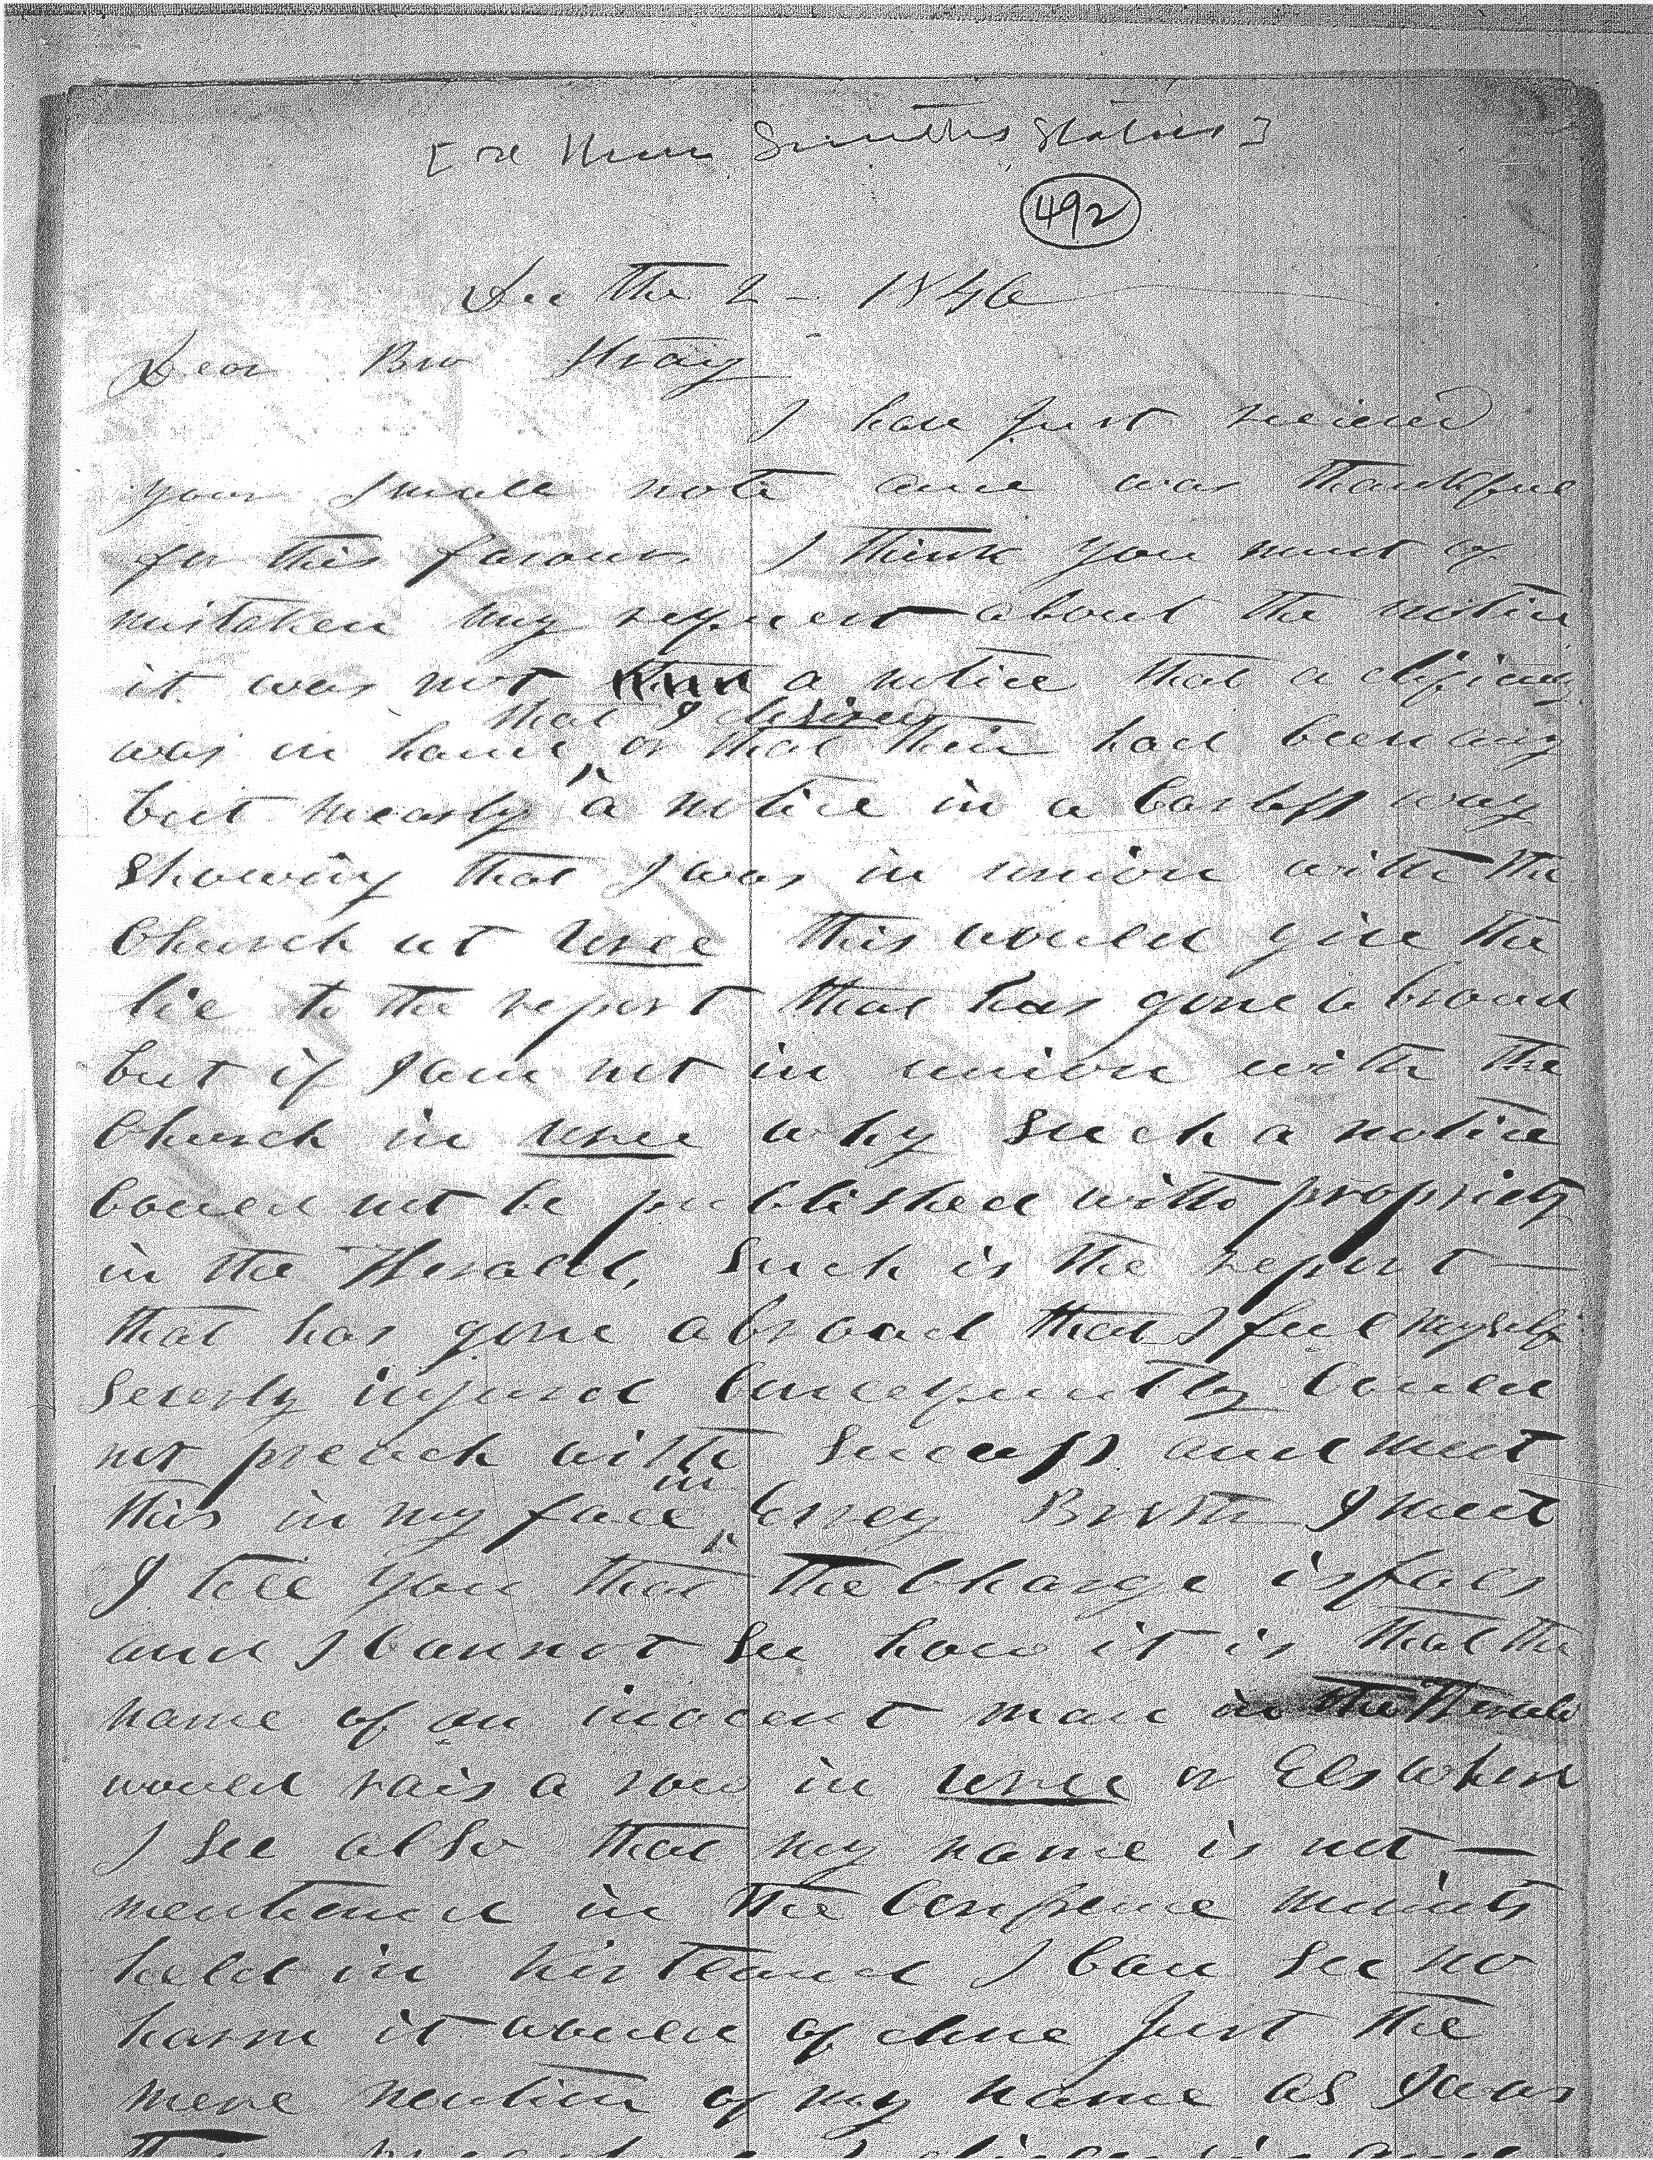 [re Wm Smith's Status]
492
Dec the 2 - 1846
Dear Bro Strang
I have Just recieved
your small note and was thankful
for this favour. I think you must of
mistaken my request about the notice
it was not a notice that a dificulty
that I desired
was in hand, or that their had been any
but mearly a notice in a Carless way
Showing that I was in union with the
Church at Voree this would give the
lie to the report that has gone abroad
but if I am not in union with the
Church in Voree why Such a notice
Could not be published with propriety
in the Herald, Such is the report
that has gone abroad that I feel myself
Severly injured Concequently Could
not preach with Sucess and meet
in
this in my face, evrey Brother I meet
I tell you that the Charge is fals
and I Cannot See how it is that the
name of an inocent man in the Herald
would rais a row in Voree or Elswhere
I See also that my name is not
mentioned in the Conference minits
held in Kirtland I Can See no
harm it would of done Just the
mere mention of my name as I was